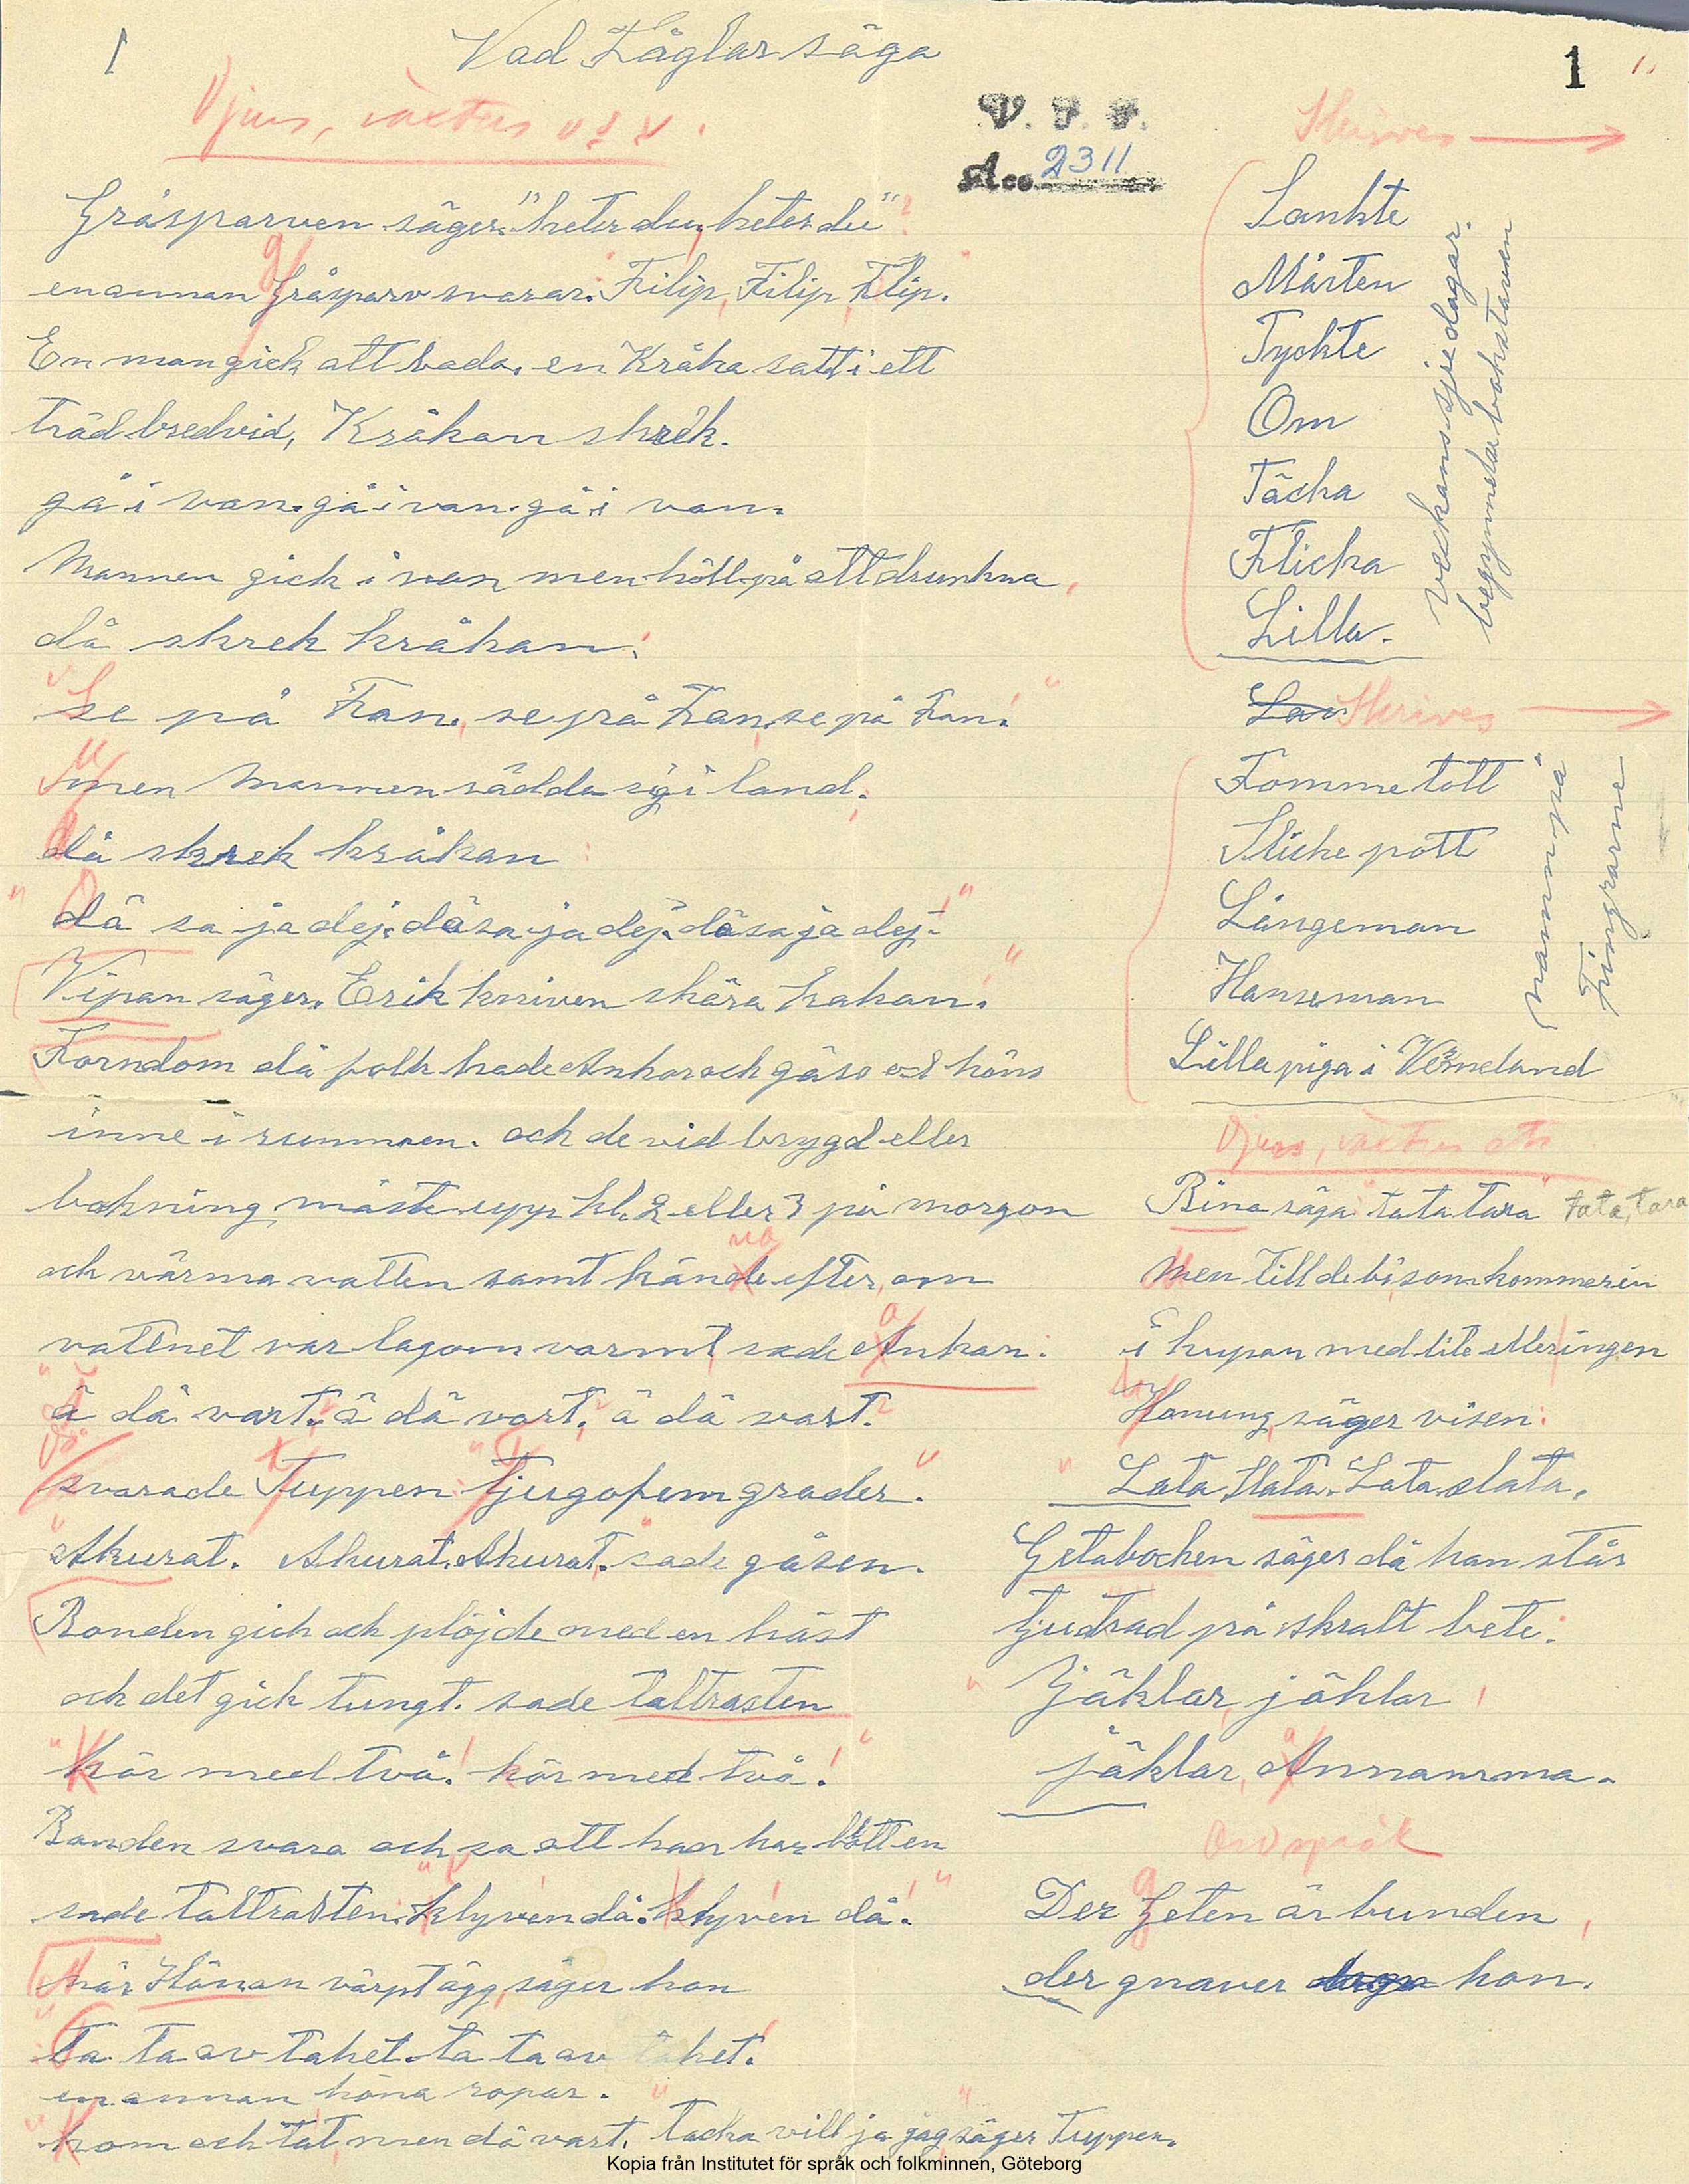 Vad Fåglar säga
1
1.
Djur, växter o s v.
V. F. F.
Acc. 2311
Gråsparven säger "heter du, heter du"?
en annan Gråsparv svarar: Filip, Filip, Filip.
En man gick att bada, en Kråka satt i ett
träd bredvid, Kråkan skrek.
gå i van. gå i van. gå i van.
Mannen gick i van men höll på att drunkna,
då skrek kråkan:
"Se på Fan, se på Fan, se på Fan!"
men Mannen rädda sig i land.
då skrek kråkan:
"dä sa ja dej, dä sa ja dej, dä sa ja dej!"
Vipan säger. Erik kniven skära kakan.
Forndom då folk hade Ankor och gäss och höns
inne i rummen. och de vid brygd eller
bakning måste upp kl. 2 eller 3 på morgon
och värma vatten samt kände efter, om
vattnet var lagom varmt sade Ankan:
ä dä vart, ä dä vart, ä dä vart?
svarade Tuppen: "tjugofem grader."
"Akurat. Akurat. Akurat." sade gåsen.
Bonden gick och plöjde med en häst
och det gick tungt. sade taltrasten
"kör med två! kör med två!"
Bonden svara och sa att han har bått en
sade taltrasten: "klyven då! klyven då!"
När Hönan värpt ägg, säger hon
Ta ta av taket. ta ta av taket!
en annan höna ropar.
"kom och tat men dä vart, tacka vill ja jag" säger Tuppen.
Skrives →
Sankte
Mårten
Tyckte
Om
Täcka
Flicka
Lilla.
veckans sju dagar.
begynnelsebokstaven
Skrives →
Tomme tott
Slicke pott
Långeman
Hanseman
Lilla piga i Värneland
namn på
Fingrarne
Djur, växter etc
Bina säga "tata tara" tata, tara
Men till de bi, som kommer in
i kupan med lite eller ingen
Honung, säger visen:
"Lata slata. Lata slata.
Getabocken säger då han står
tjudrad på skralt bete:
"Jäklar, jäklar!
jäklar, Annamma.
Ordspråk
Der Geten är bunden,
der gnaver hon.
Kopia från Institutet för språk och folkminnen, Göteborg